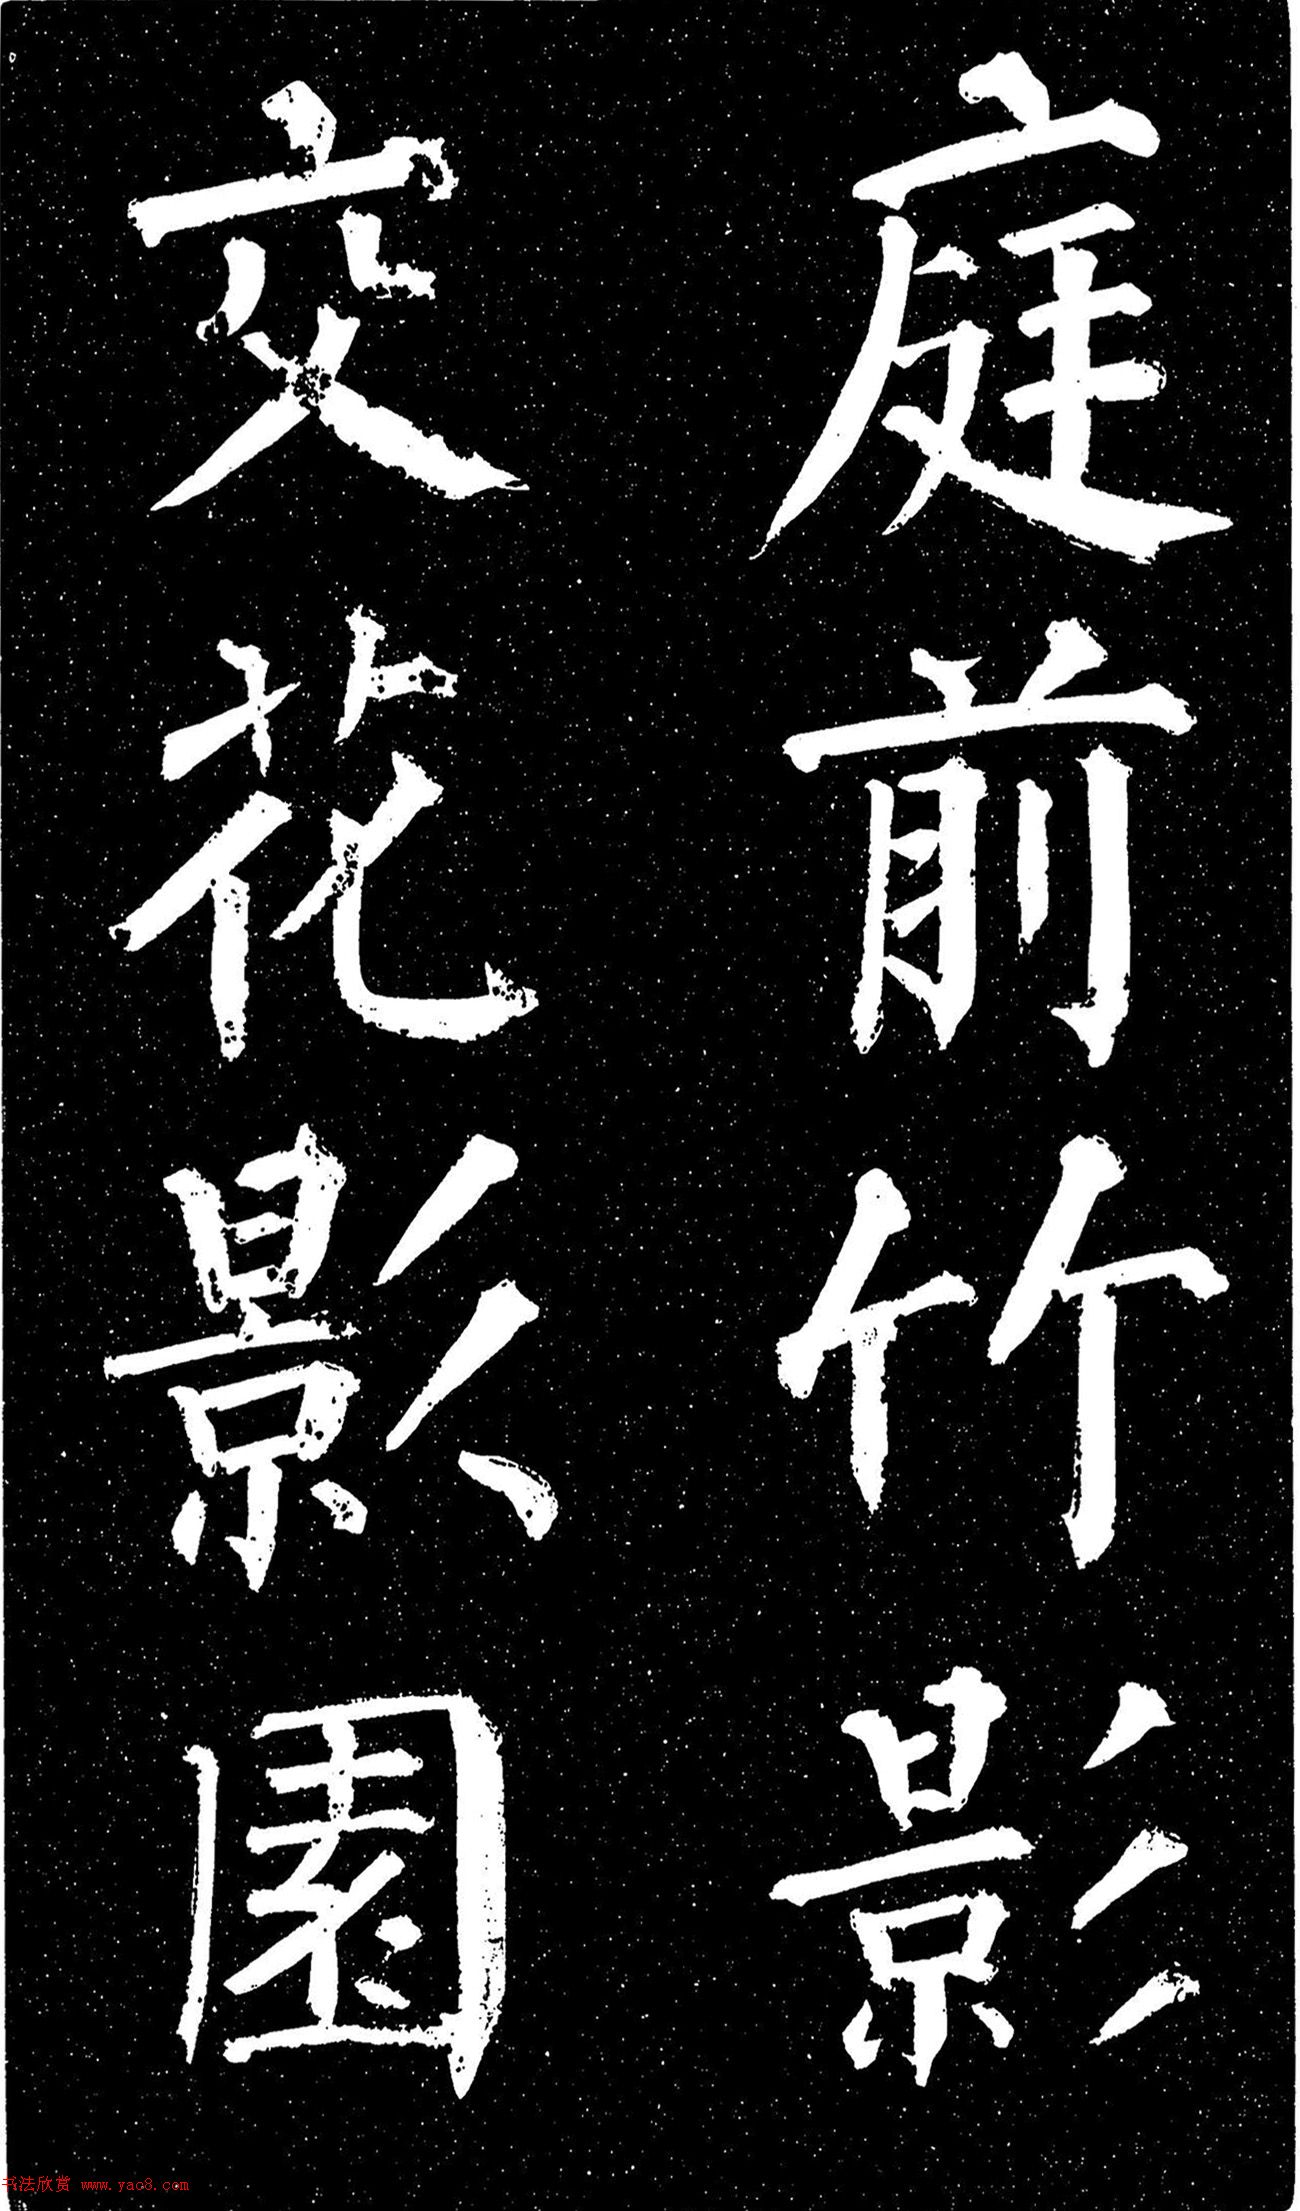 庭前竹影
交花影園
书法欣赏 www.yac8.com